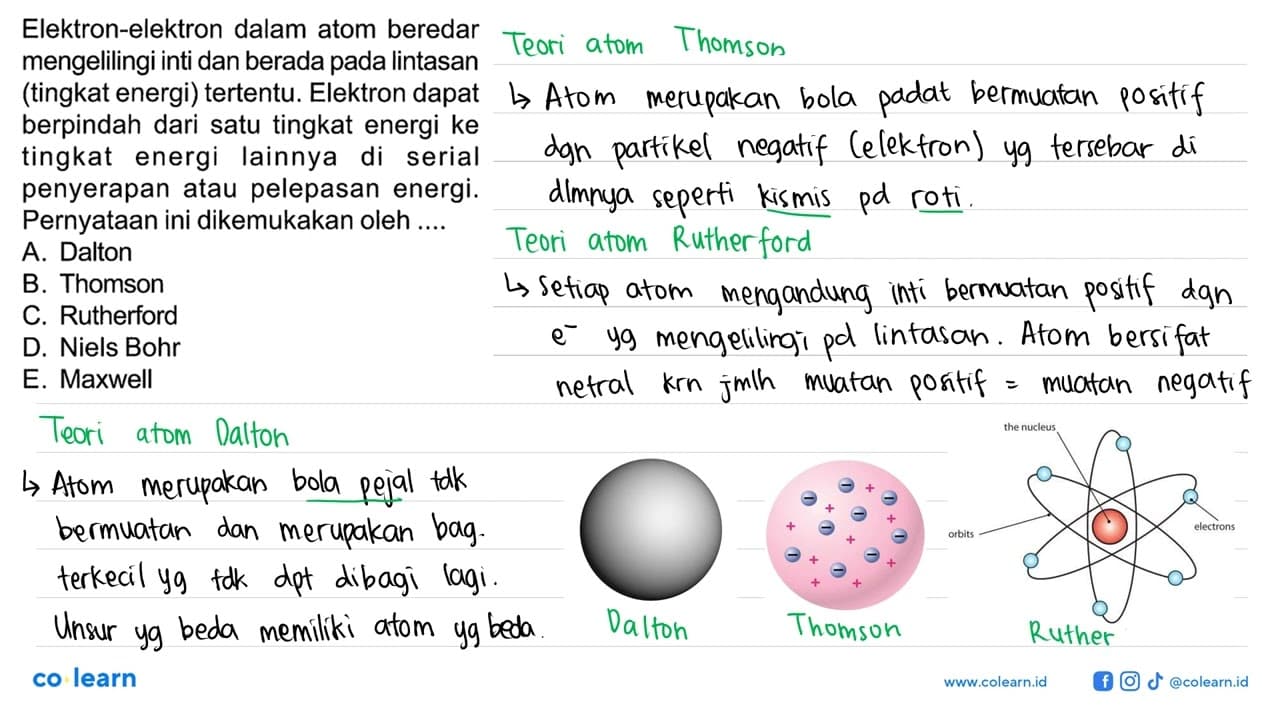 Elektron-elektron dalam atom beredar
mengelilingi inti dan berada pada lintasan
(tingkat energi) tertentu. Elektron dapat
berpindah dari satu tingkat energi ke
tingkat energi lainnya di serial
penyerapan atau pelepasan energi.
Pernyataan ini dikemukakan oleh ....
A. Dalton
B. Thomson
C. Rutherford
D. Niels Bohr
E. Maxwell
Teori atom Thomson
↳ Atom merupakan bola padat bermuatan positif
dgn partikel negatif (elektron) yg tersebar di
dlmnya seperti kismis pd roti.
Teori atom Rutherford
↳ Setiap atom mengandung inti bermuatan positif dgn
e⁻ yg mengelilingi pd lintasan. Atom bersifat
netral krn jmlh muatan positif = muatan negatif
Teori atom Dalton
↳ Atom merupakan bola pejal tdk
bermuatan dan merupakan bag.
terkecil yg tdk dpt dibagi lagi.
Unsur yg beda memiliki atom yg beda.
Dalton
Thomson
the nucleus
orbits
electrons
Ruther
co learn
www.colearn.id
@colearn.id